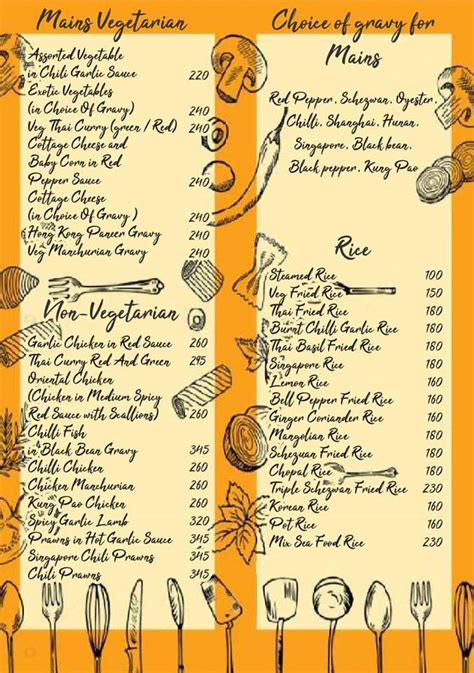 Mains Vegetarian
Assorted Vegetable
in Chili Garlic Sauce 220
Exotic Vegetables
(in Choice Of Gravy) 240
Veg Thai Curry (green / Red) 240
Cottage Cheese and
Baby Corn in Red
Pepper Sauce 240
Cottage Cheese
(in Choice Of Gravy ) 240
Hong Kong Paneer Gravy 240
Veg Manchurian Gravy 240
Non-Vegetarian
Garlic Chicken in Red Sauce 260
Thai Curry Red And Green 295
Oriental Chicken
(Chicken in Medium Spicy
Red Sauce with Scallions) 260
Chilli Fish
in Black Bean Gravy 345
Chilli Chicken 260
Chicken Manchurian 260
Kung Pao Chicken 260
Spicy Garlic Lamb 320
Prawns in Hot Garlic Sauce 345
Singapore Chilli Prawns 345
Chili Prawns 345
Choice of gravy for
Mains
Red Pepper, Schezwan, Oyester,
Chilli, Shanghai, Hunan,
Singapore, Black bean,
Black pepper, Kung Pao
Rice
Steamed Rice 100
Veg Fried Rice 150
Thai Fried Rice 180
Burnt Chilli Garlic Rice 180
Thai Basil Fried Rice 180
Singapore Rice 180
Lemon Rice 160
Bell Pepper Fried Rice 160
Ginger Coriander Rice 160
Mangolian Rice 180
Schezuan Fried Rice 160
Chopal Rice 180
Triple Schezwan Fried Rice 230
Korean Rice 160
Pot Rice 160
Mix Sea Food Rice 230